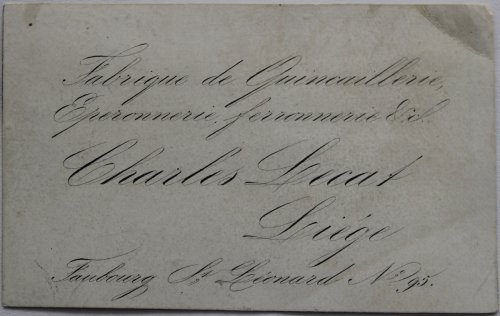 Fabrique de Quincaillerie,
Eperonnerie, ferronnerie &c.
Charles Lecat
Liége
Faubourg St Léonard No 95.